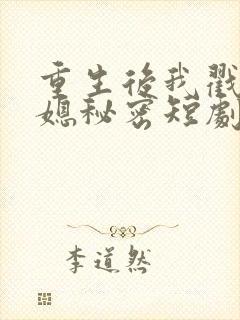 重生後我戳
媳秘密短劇
李道然